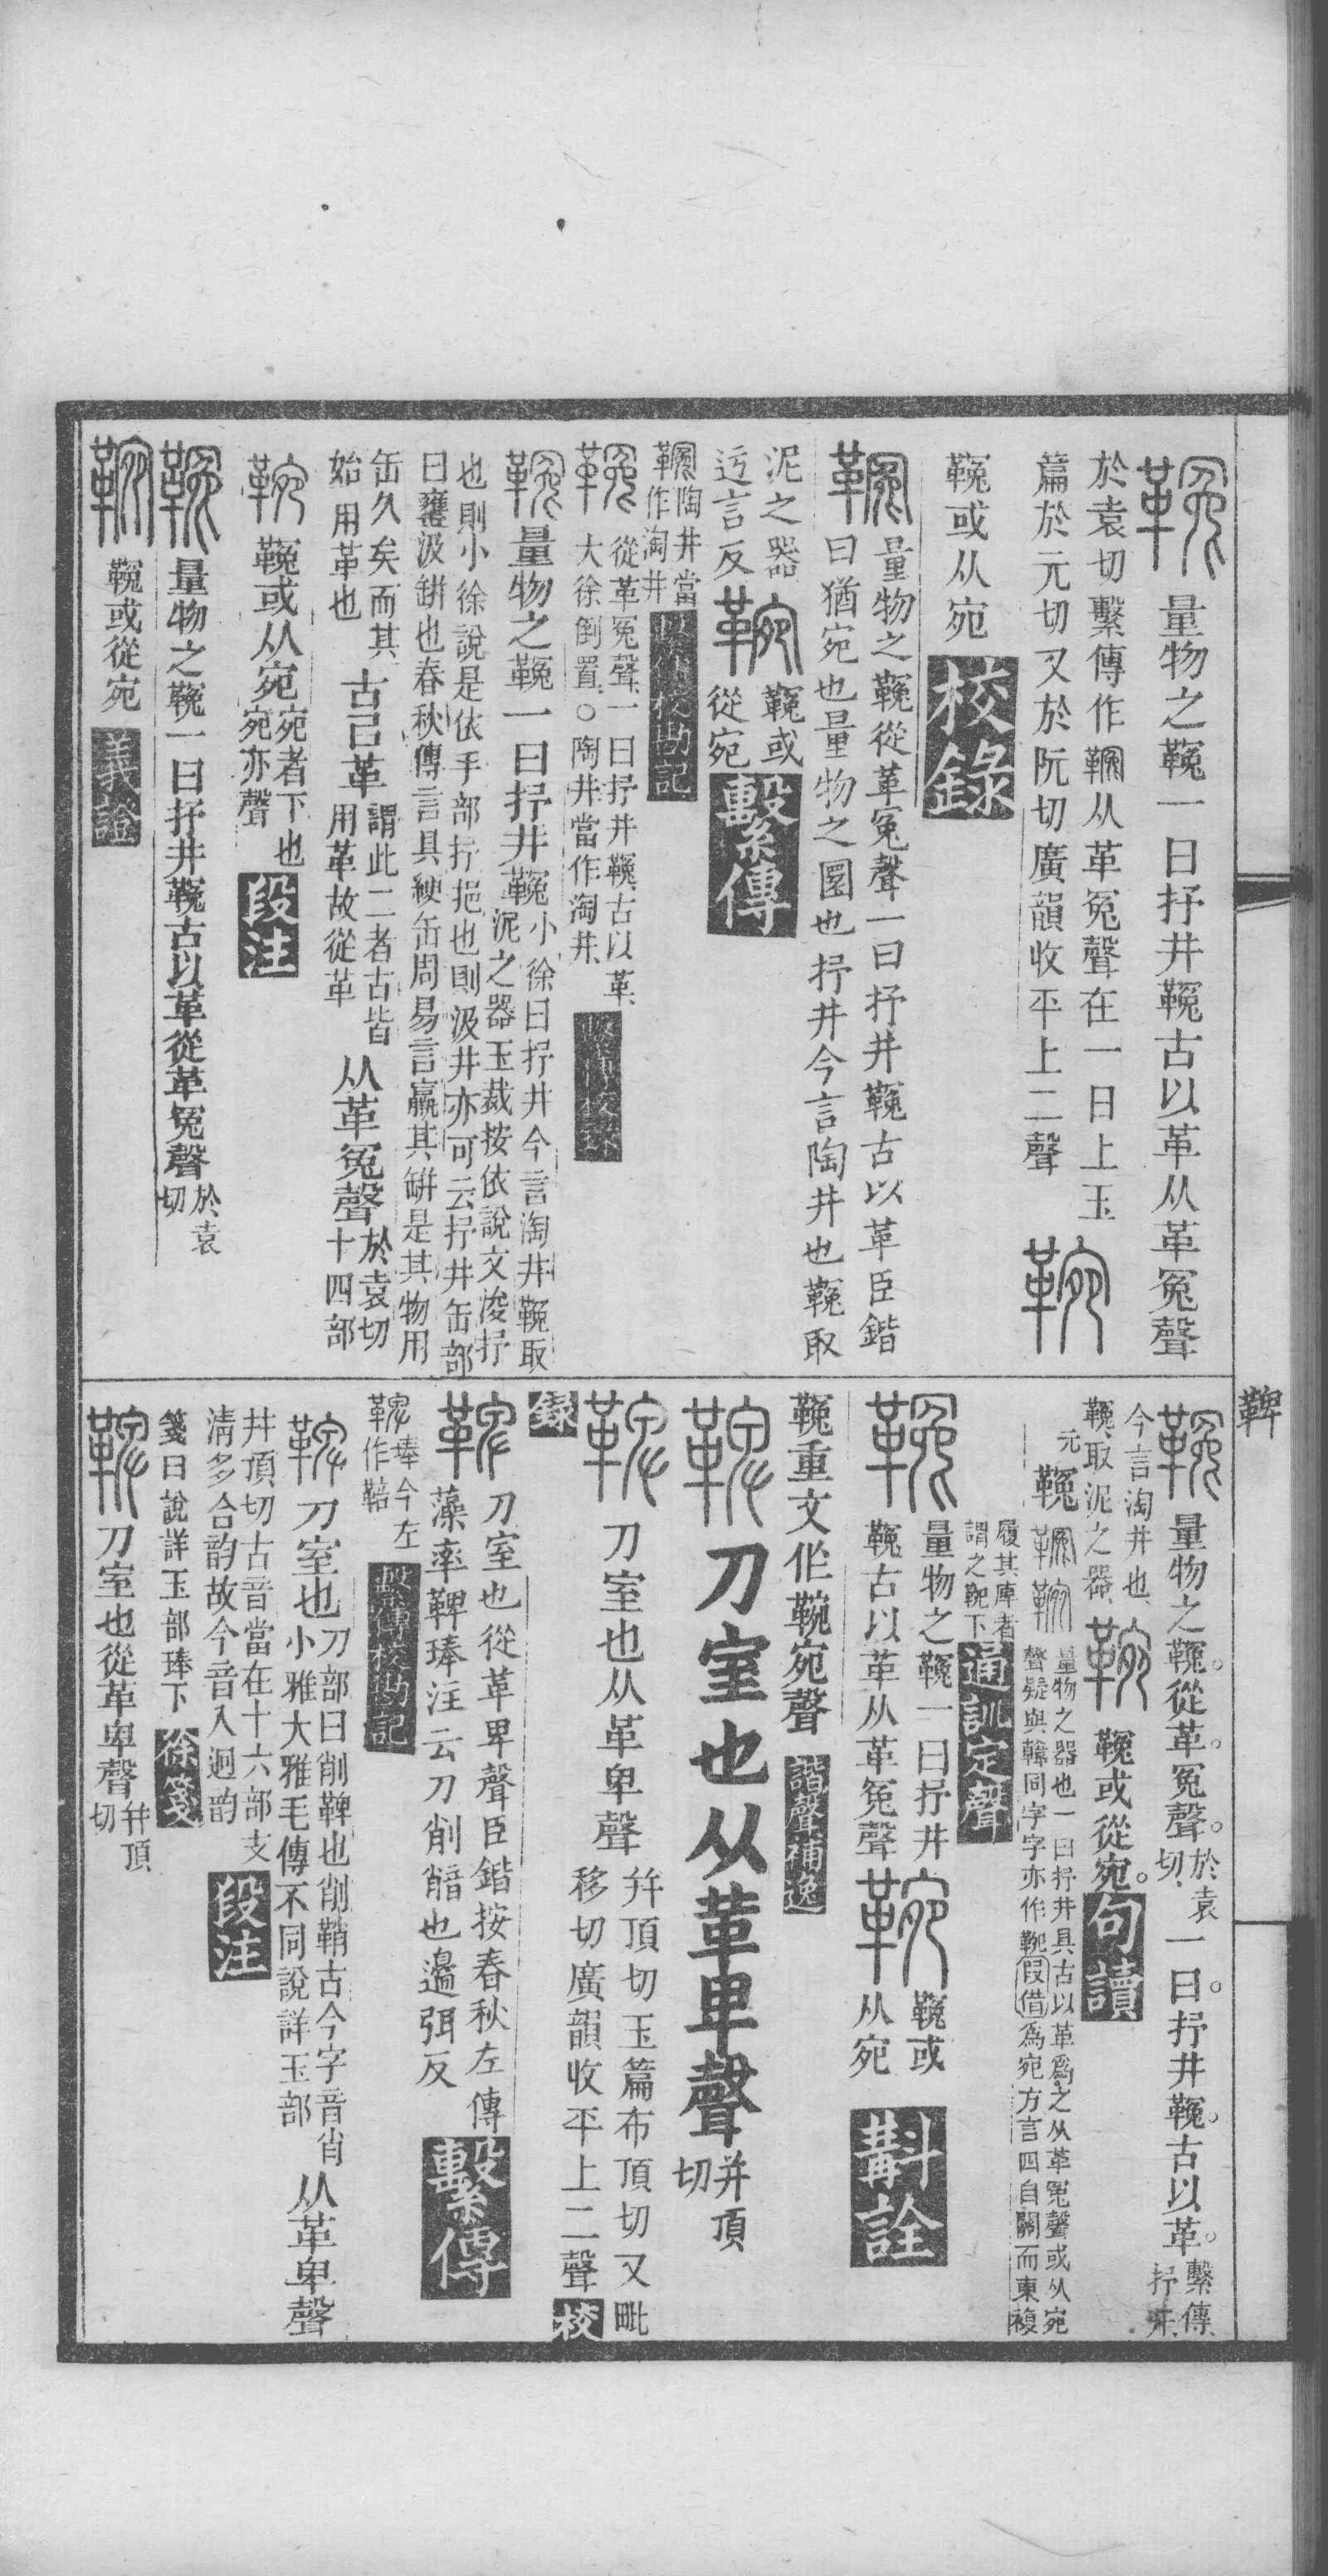 鞔量物之鞔一曰抒井鞔古以革从革冤聲
於袁切繫傳作鞔从革冤聲在一曰上玉
篇於元切又於阮切廣韻收平上二聲
鞔或从宛
校錄
量物之鞔從革冤聲一曰抒井鞔古以革臣鍇
曰猶宛也量物之圜也抒井今言陶井也鞔取
泥之器
迃言反
鞔或
從宛
繫傳
陶井當
作淘井
繫傳校勘記
從革冤聲一曰抒井鞔古以革
大徐倒置○陶井當作淘井
量物之鞔一曰抒井鞔
小徐曰抒井今言淘井鞔取
泥之器玉裁按依說文浚抒
也則小徐說是依手部抒挹也則汲井亦可云抒井缶部
曰罋汲缾也春秋傳言具綆缶周易言羸其缾是其物用
缶久矣而其
始用革也
古㠯革
謂此二者古皆
用革故從革
从革冤聲
於袁切
十四部
鞔或从宛
宛者下也
宛亦聲
段注
量物之鞔一曰抒井鞔古以革從革冤聲
於袁
切
鞔或從宛
義證
鞞
量物之鞔從革冤聲
於袁
切
一曰抒井鞔古以革
繫傳
抒井
今言淘井也
鞔取泥之器
鞔或從宛
句讀
元
鞔
量物之器也一曰抒井具古以革爲之从革冤聲或从宛
聲疑與韓同字字亦作鞔假借爲宛方言四自關而東複
履其庳者
謂之鞔下
通訓定聲
量物之鞔一曰抒井
鞔古以革从革冤聲
鞔或
从宛
斠詮
鞔重文作䩊宛聲
諧聲補逸
刀室也从革卑聲
并頂
切
刀室也从革卑聲
并頂切玉篇布頂切又毗
移切廣韻收平上二聲
校
錄
刀室也從革卑聲臣鍇按春秋左傳
藻率鞞琫注云刀削䪞也邉弭反
琫今左
作鞛
繫傳校勘記
刀室也
刀部曰削鞞也削鞘古今字音肖
小雅大雅毛傳不同說詳玉部
从革卑聲
并頂切古音當在十六部支
淸多合韵故今音入迥韵
段注
箋曰說詳玉部琫下
徐箋
刀室也從革卑聲
并頂
切